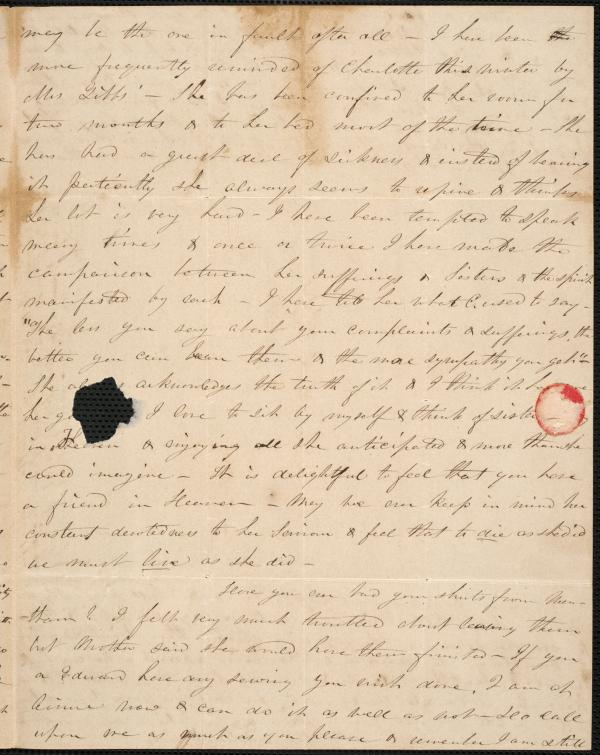 may be the one in fault after all - I have been
more frequently reminded of Charlotte this winter by
Mrs Gibbs' - She has been confined to her room for
two months & to her bed most of the time - She
has had a great deal of sickness & instead of bearing
it patiently she always seems to repine & thinks
her lot is very hard - I have been tempted to speak
many times & once or twice I have made the
comparison between her sufferings & Sisters & the spirit
manifested by each - I have told her what C. used to say -
"The less you say about your complaints & sufferings, the
better you can bear them & the more sympathy you get" -
She always acknowledges the truth of it & I think it has
her I love to sit by myself & think of sister
in Heaven & enjoying all she anticipated & more than she
could imagine - It is delightful to feel that you have
a friend in Heaven - May we ever keep in mind her
constant devotedness to her Saviour & feel that to die as she did
we must live as she did -
Have you ever had your shirts from
? I felt very much troubled about leaving them
but Mother said she would have them finished - If you
or Edward have any sewing you wish done, I am at
leisure now & can do it as well as not - So call
upon me as much as you please & remember I am still